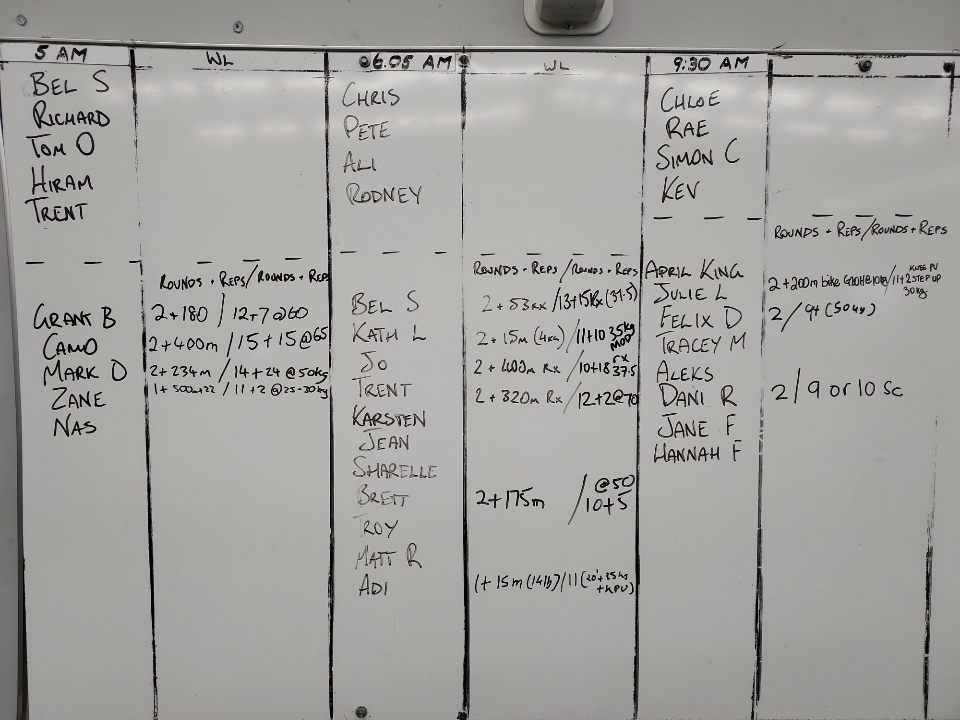 5 AM WL
BEL S
RICHARD
TOM O
HIRAM
TRENT
ROUNDS + REPS/ROUNDS + REPS
GRANT B 2+180 / 12+7@60
CAMO 2+400m / 15+15@65
MARK D 2+234m / 14+24@50kg
ZANE 1+500m+22 / 11+2@25-30kg
NAS
06.05 AM WL
CHRIS
PETE
ALI
RODNEY
ROUNDS + REPS / ROUNDS + REPS
BEL S 2+53RX / 13+15RX(37.5)
KATH L 2+15m (4kg) / 11+10 35kg MOD
JO 2+400m RX / 10+18 RX 37.5
TRENT 2+320m Rx / 12+2@70
KARSTEN
JEAN
SHARELLE
BRETT 2+175m / @50 10+5
TROY
MATT R
ADI 1+15m (14lb) / 11 (20"+35kg +KPU)
9:30 AM
CHLOE
RAE
SIMON C
KEV
ROUNDS + REPS/ROUNDS + REPS
APRIL KING
JULIE L 2+200m bike @10kg / 11+2 STEP UP 30kg
FELIX D 2/9+(50kg)
TRACEY M
ALEKS
DANI R 2/9 OR 10 SC
JANE F
HANNAH F